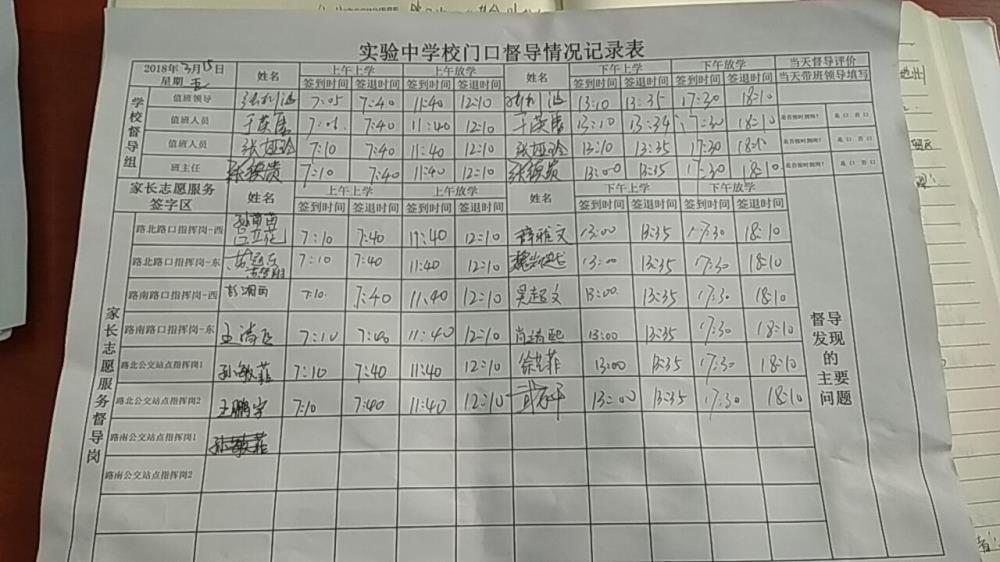 实验中学校门口督导情况记录表
2018年3月15日
星期五
姓名 上午上学 上午放学 姓名 下午上学 下午放学 当天督导评价
签到时间 签退时间 签到时间 签退时间 签到时间 签退时间 签到时间 签退时间 当天带班领导填写
学校督导组
值班领导 7:05 7:40 11:40 12:10 13:10 13:35 17:30 18:10
值班人员 7:40 11:40 12:10 13:10 13:34 17:30 18:10 是否按时到岗? 是口 否口
值班人员 7:10 7:40 11:40 12:10 13:10 13:35 17:30 18:10 是否按时到岗? 是口 否口
班主任 7:10 7:40 11:40 12:10 13:00 13:35 17:30 18:10 是否按时到岗? 是口 否口
家长志愿服务
签字区
姓名 上午上学 上午放学 姓名 下午上学 下午放学
签到时间 签退时间 签到时间 签退时间 签到时间 签退时间 签到时间 签退时间
家长志愿服务督导岗
路北路口指挥岗-西 7:10 7:40 11:40 12:10 薛雅文 13:00 13:35 17:30 18:10
路北路口指挥岗-东 7:10 7:40 11:40 12:10 13:00 13:35 17:30 18:10
路南路口指挥岗-西 7:10 7:40 11:40 12:10 吴超文 13:00 13:35 17:30 18:10
路南路口指挥岗-东 7:10 7:40 11:40 12:10 13:00 13:35 17:30 18:10
路北公交站点指挥岗1 孙敏菲 7:10 7:40 11:40 12:10 13:00 13:35 17:30 18:10
路北公交站点指挥岗2 王鹏宇 7:10 7:40 11:40 12:10 13:00 13:35 17:30 18:10
路南公交站点指挥岗1 孙敏菲
路南公交站点指挥岗2
督导
发现
的
主要
问题